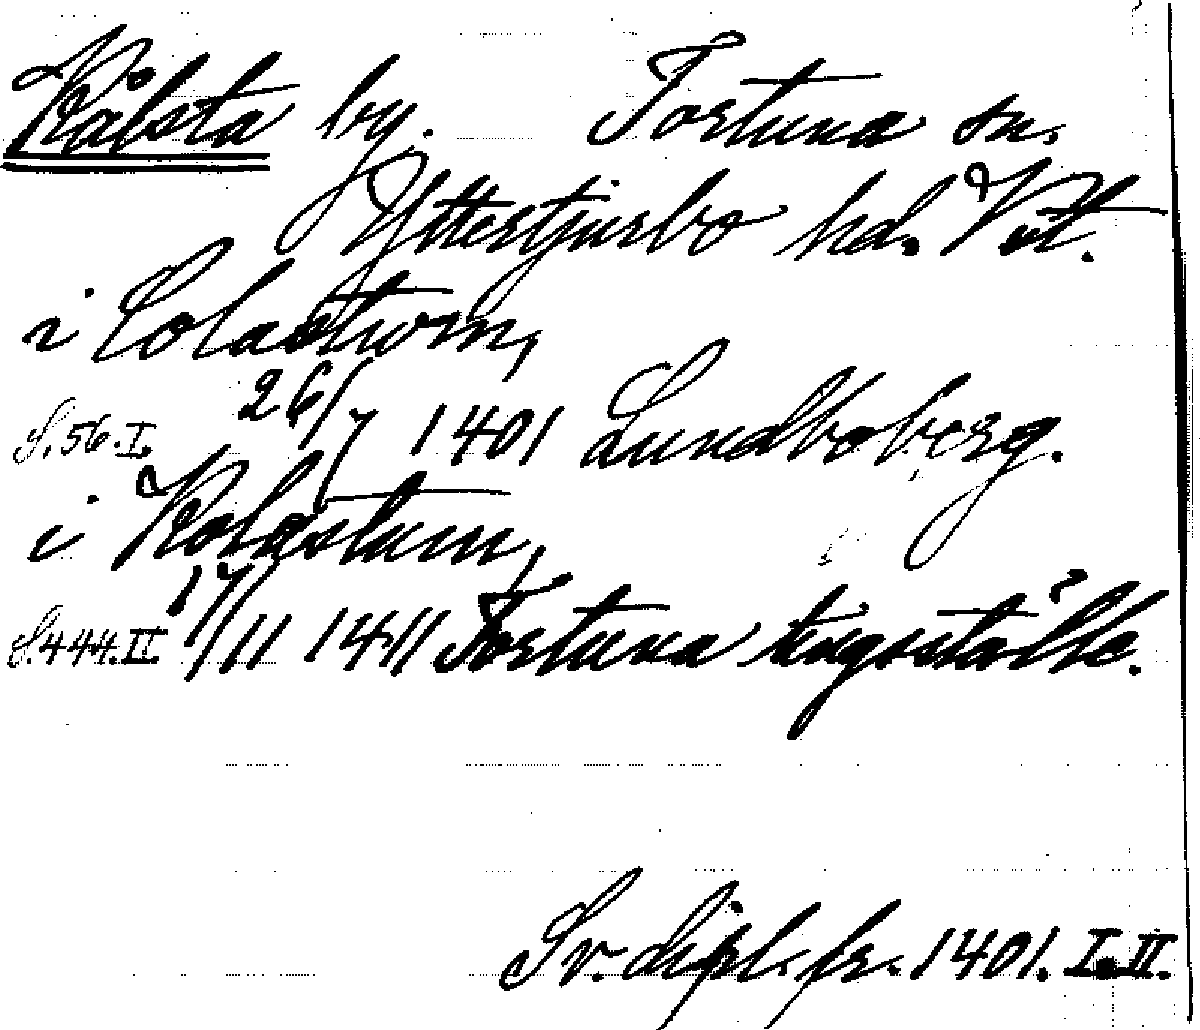 Kålsta by. Tortuna sn.
Yttertjurbo hd. Vstm.
i Colastwm,
S. 56. I. 26/7 1401 Lundboberg.
i Kolastum,
S. 444. II. 17/11 1411 Tortuna tingsställe.
Sv. dipl. fr. 1401. I. II.